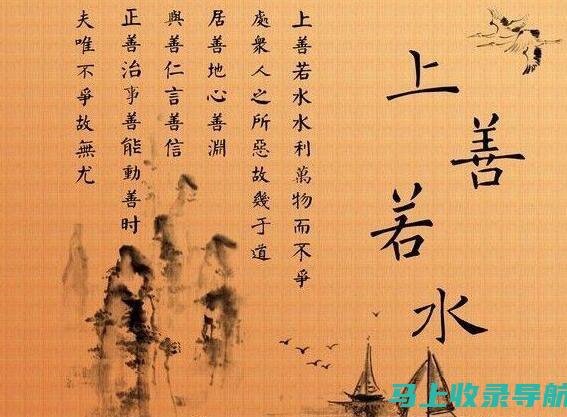 上善若水
上善若水水利萬物而不爭
處衆人之所惡故幾于道
居善地心善淵
與善仁言善信
正善治事善能動善时
夫唯不爭故無尤
马上收录导航